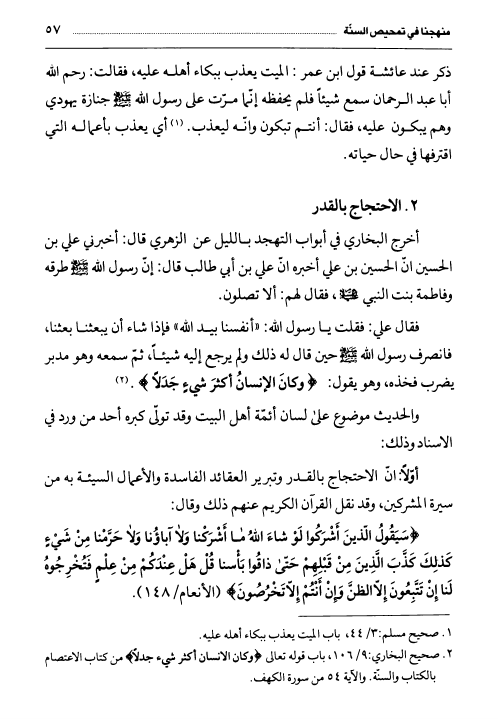 منهجنا في تمحيص السنّة ........................................................................ ٥٧
ذكر عند عائشة قول ابن عمر : الميت يعذب ببكاء أهله عليه، فقالت: رحم الله
أبا عبد الرحمان سمع شيئاً فلم يحفظه إنّما مرّت على رسول الله ﷺ جنازة يهودي
وهم يبكون عليه، فقال: أنتم تبكون وانّه ليعذب. (١) أي يعذب بأعماله التي
اقترفها في حال حياته.
٢. الاحتجاج بالقدر
أخرج البخاري في أبواب التهجد بالليل عن الزهري قال: أخبرني علي بن
الحسين انّ الحسين بن علي أخبره انّ علي بن أبي طالب قال: إنّ رسول الله ﷺ طرقه
وفاطمة بنت النبي ، فقال لهم: ألا تصلون.
فقال علي: فقلت يا رسول الله: «أنفسنا بيد الله» فإذا شاء أن يبعثنا بعثنا،
فانصرف رسول الله ﷺ حين قال له ذلك ولم يرجع إليه شيئاً، ثمّ سمعه وهو مدبر
يضرب فخذه، وهو يقول: ﴿ وكانَ الإنسانُ أكثرَ شيءٍ جَدَلاً ﴾ . (٢)
والحديث موضوع على لسان أئمّة أهل البيت وقد تولّى كبره أحد من ورد في
الاسناد وذلك:
أوّلاً: انّ الاحتجاج بالقدر وتبرير العقائد الفاسدة والأعمال السيئة به من
سيرة المشركين، وقد نقل القرآن الكريم عنهم ذلك وقال:
﴿سَيَقُولُ الَّذينَ أَشْرَكُوا لَوْ شاءَ اللهُ ما أَشْرَكْنا وَلا آباؤُنا وَلا حَرَّمْنا مِنْ شَيْءٍ
كَذلِكَ كَذَّبَ الَّذِينَ مِنْ قَبْلِهِمْ حَتّىٰ ذاقُوا بَأْسنا قُلْ هَلْ عِنْدَكُمْ مِنْ عِلْمٍ فَتُخْرِجُوهُ
لَنا إِنْ تَتَّبِعُونَ إِلاّ الظنَّ وَإِنْ أَنْتُمْ إِلاّ تَخْرُصُونَ﴾ (الأنعام/ ١٤٨).
١. صحيح مسلم: ٣/ ٤٤، باب الميت يعذب ببكاء أهله عليه.
٢. صحيح البخاري: ٩/ ١٠٦، باب قوله تعالى ﴿وكان الانسان أكثر شيء جدلاً﴾ من كتاب الاعتصام
بالكتاب والسنّة. والآية ٥٤ من سورة الكهف.